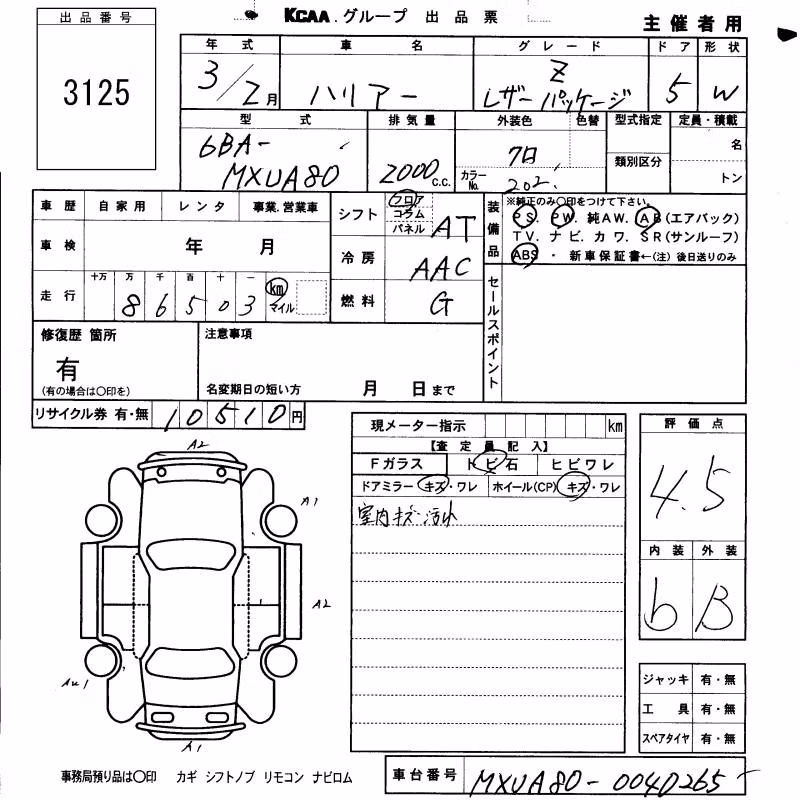 KCAA.グループ 出品票
主催者用
出品番号
3125
年式 車名 グレード ドア 形状
3/2月 ハリアー Z レザーパッケージ 5 W
型式 排気量 外装色 色替 型式指定 定員・積載
6BA-MXUA80 2000c.c. カラーNo. 202 類別区分 名 トン
車歴 自家用 レンタ 事業.営業車
シフト フロア コラム パネル AT
装備品 ※純正のみ〇印をつけて下さい。
PS. PW. 純AW. AB(エアバック)
TV. ナビ. カワ. SR(サンルーフ)
ABS ・ 新車保証書←(注)後日送りのみ
車検 年 月
冷房 AAC
走行 十万 万 千 百 十 一
86503 km マイル
燃料 G
セールスポイント
修復歴 箇所
有
(有の場合は〇印を)
注意事項
名変期日の短い方 月 日まで
リサイクル券 有・無 10510円
現メーター指示 km
【査定員記入】
Fガラス トビ石 ヒビワレ
ドアミラー キズ・ワレ ホイール(CP) キズ・ワレ
室内キズ・汚れ
評価点
4.5
内装 外装
b B
A2
A1
A2
A1
ジャッキ 有・無
工具 有・無
スペアタイヤ 有・無
事務局預り品は〇印 カギ シフトノブ リモコン ナビロム
車台番号 MXUA80-0040265